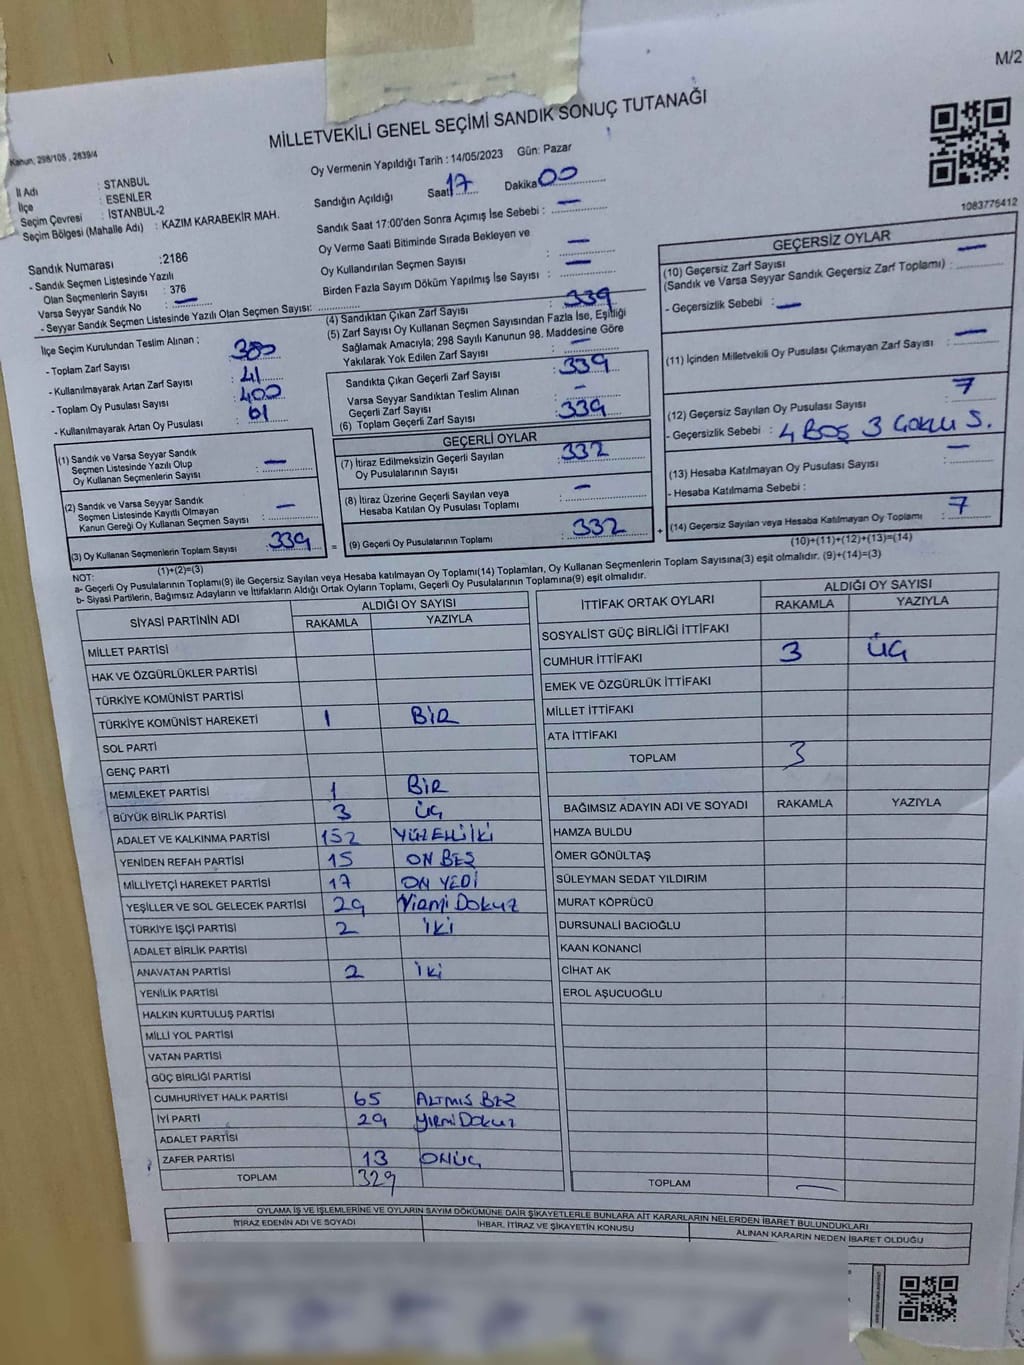 M/2
MİLLETVEKİLİ GENEL SEÇİMİ SANDIK SONUÇ TUTANAĞI
Kanun, 298/105 , 2839/4
Oy Vermenin Yapıldığı Tarih : 14/05/2023 Gün: Pazar
İl Adı : STANBUL
İlçe : ESENLER
Seçim Çevresi : İSTANBUL-2
Seçim Bölgesi (Mahalle Adı) : KAZIM KARABEKİR MAH.
Sandığın Açıldığı Saat 17 Dakika 00
Sandık Saat 17:00'den Sonra Açımış İse Sebebi : —
Oy Verme Saati Bitiminde Sırada Bekleyen ve
Oy Kullandırılan Seçmen Sayısı : —
Birden Fazla Sayım Döküm Yapılmış İse Sayısı : —
1083775412
Sandık Numarası :2186
- Sandık Seçmen Listesinde Yazılı
Olan Seçmenlerin Sayısı : 376
Varsa Seyyar Sandık No : —
- Seyyar Sandık Seçmen Listesinde Yazılı Olan Seçmen Sayısı:
İlçe Seçim Kurulundan Teslim Alınan ;
- Toplam Zarf Sayısı : 380
- Kullanılmayarak Artan Zarf Sayısı : 41
- Toplam Oy Pusulası Sayısı : 400
- Kullanılmayarak Artan Oy Pusulası : 61
(1) Sandık ve Varsa Seyyar Sandık
Seçmen Listesinde Yazılı Olup
Oy Kullanan Seçmenlerin Sayısı : —
(2) Sandık ve Varsa Seyyar Sandık
Seçmen Listesinde Kayıtlı Olmayan
Kanun Gereği Oy Kullanan Seçmen Sayısı : —
(3) Oy Kullanan Seçmenlerin Toplam Sayısı : 339
(1)+(2)=(3)
(4) Sandıktan Çıkan Zarf Sayısı : 339
(5) Zarf Sayısı Oy Kullanan Seçmen Sayısından Fazla İse, Eşitliği
Sağlamak Amacıyla; 298 Sayılı Kanunun 98. Maddesine Göre
Yakılarak Yok Edilen Zarf Sayısı : —
Sandıkta Çıkan Geçerli Zarf Sayısı : 339
Varsa Seyyar Sandıktan Teslim Alınan
Geçerli Zarf Sayısı : -
(6) Toplam Geçerli Zarf Sayısı : 339
GEÇERLİ OYLAR
(7) İtiraz Edilmeksizin Geçerli Sayılan
Oy Pusulalarının Sayısı : 332
(8) İtiraz Üzerine Geçerli Sayılan veya
Hesaba Katılan Oy Pusulası Toplamı : -
= (9) Geçerli Oy Pusulalarının Toplamı : 332 +
GEÇERSİZ OYLAR
(10) Geçersiz Zarf Sayısı
(Sandık ve Varsa Seyyar Sandık Geçersiz Zarf Toplamı) : —
- Geçersizlik Sebebi : —
(11) İçinden Milletvekili Oy Pusulası Çıkmayan Zarf Sayısı : —
(12) Geçersiz Sayılan Oy Pusulası Sayısı : 7
- Geçersizlik Sebebi : 4 BOŞ 3 ÇOKLU S.
(13) Hesaba Katılmayan Oy Pusulası Sayısı : —
- Hesaba Katılmama Sebebi :
(14) Geçersiz Sayılan veya Hesaba Katılmayan Oy Toplamı : 7
(10)+(11)+(12)+(13)=(14)
NOT:
a- Geçerli Oy Pusulalarının Toplamı(9) ile Geçersiz Sayılan veya Hesaba katılmayan Oy Toplamı(14) Toplamları, Oy Kullanan Seçmenlerin Toplam Sayısına(3) eşit olmalıdır. (9)+(14)=(3)
b- Siyasi Partilerin, Bağımsız Adayların ve İttifakların Aldığı Ortak Oyların Toplamı, Geçerli Oy Pusulalarının Toplamına(9) eşit olmalıdır.
SİYASİ PARTİNİN ADI ALDIĞI OY SAYISI
RAKAMLA YAZIYLA
MİLLET PARTİSİ
HAK VE ÖZGÜRLÜKLER PARTİSİ
TÜRKİYE KOMÜNİST PARTİSİ
TÜRKİYE KOMÜNİST HAREKETİ 1 BİR
SOL PARTİ
GENÇ PARTİ
MEMLEKET PARTİSİ 1 BİR
BÜYÜK BİRLİK PARTİSİ 3 ÜÇ
ADALET VE KALKINMA PARTİSİ 152 YÜZELLİİKİ
YENİDEN REFAH PARTİSİ 15 ON BEŞ
MİLLİYETÇİ HAREKET PARTİSİ 17 ON YEDİ
YEŞİLLER VE SOL GELECEK PARTİSİ 29 Yirmi Dokuz
TÜRKİYE İŞÇİ PARTİSİ 2 İKİ
ADALET BİRLİK PARTİSİ
ANAVATAN PARTİSİ 2 İKİ
YENİLİK PARTİSİ
HALKIN KURTULUŞ PARTİSİ
MİLLİ YOL PARTİSİ
VATAN PARTİSİ
GÜÇ BİRLİĞİ PARTİSİ
CUMHURİYET HALK PARTİSİ 65 ALTMIŞ BEŞ
İYİ PARTİ 29 YİRMİ Dokuz
ADALET PARTİSİ
ZAFER PARTİSİ 13 ONÜÇ
TOPLAM 329
İTTİFAK ORTAK OYLARI ALDIĞI OY SAYISI
RAKAMLA YAZIYLA
SOSYALİST GÜÇ BİRLİĞİ İTTİFAKI
CUMHUR İTTİFAKI 3 ÜÇ
EMEK VE ÖZGÜRLÜK İTTİFAKI
MİLLET İTTİFAKI
ATA İTTİFAKI
TOPLAM 3
BAĞIMSIZ ADAYIN ADI VE SOYADI RAKAMLA YAZIYLA
HAMZA BULDU
ÖMER GÖNÜLTAŞ
SÜLEYMAN SEDAT YILDIRIM
MURAT KÖPRÜCÜ
DURSUNALİ BACIOĞLU
KAAN KONANCİ
CİHAT AK
EROL AŞUCUOĞLU
TOPLAM —
OYLAMA İŞ VE İŞLEMLERİNE VE OYLARIN SAYIM DÖKÜMÜNE DAİR ŞİKAYETLERLE BUNLARA AİT KARARLARIN NELERDEN İBARET BULUNDUKLARI
İTİRAZ EDENİN ADI VE SOYADI İHBAR, İTİRAZ VE ŞİKAYETİN KONUSU ALINAN KARARIN NEDEN İBARET OLDUĞU